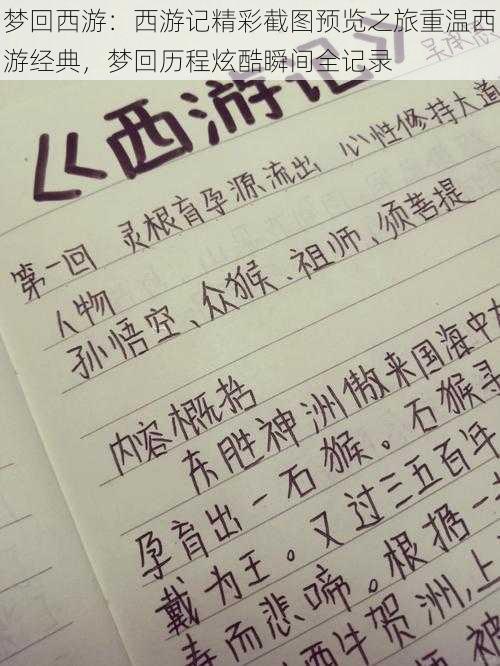 梦回西游：西游记精彩截图预览之旅重温西
游经典，梦回历程炫酷瞬间全记录
《西游记》
吴承恩
第一回 灵根育孕源流出 心性修持大道
人物
孙悟空、众猴、祖师、须菩提
内容概括
东胜神洲傲来国海中
孕育出一石猴。石猴寻
戴为王。又过三五百年
而悲啼。根据一
西牛贺洲，上